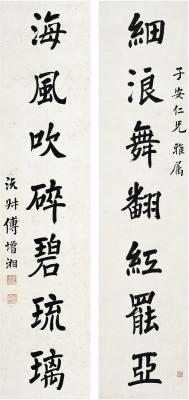 細浪舞翻紅罷亞
子安仁兄雅屬
海風吹碎碧琉璃
沅叔傅增湘